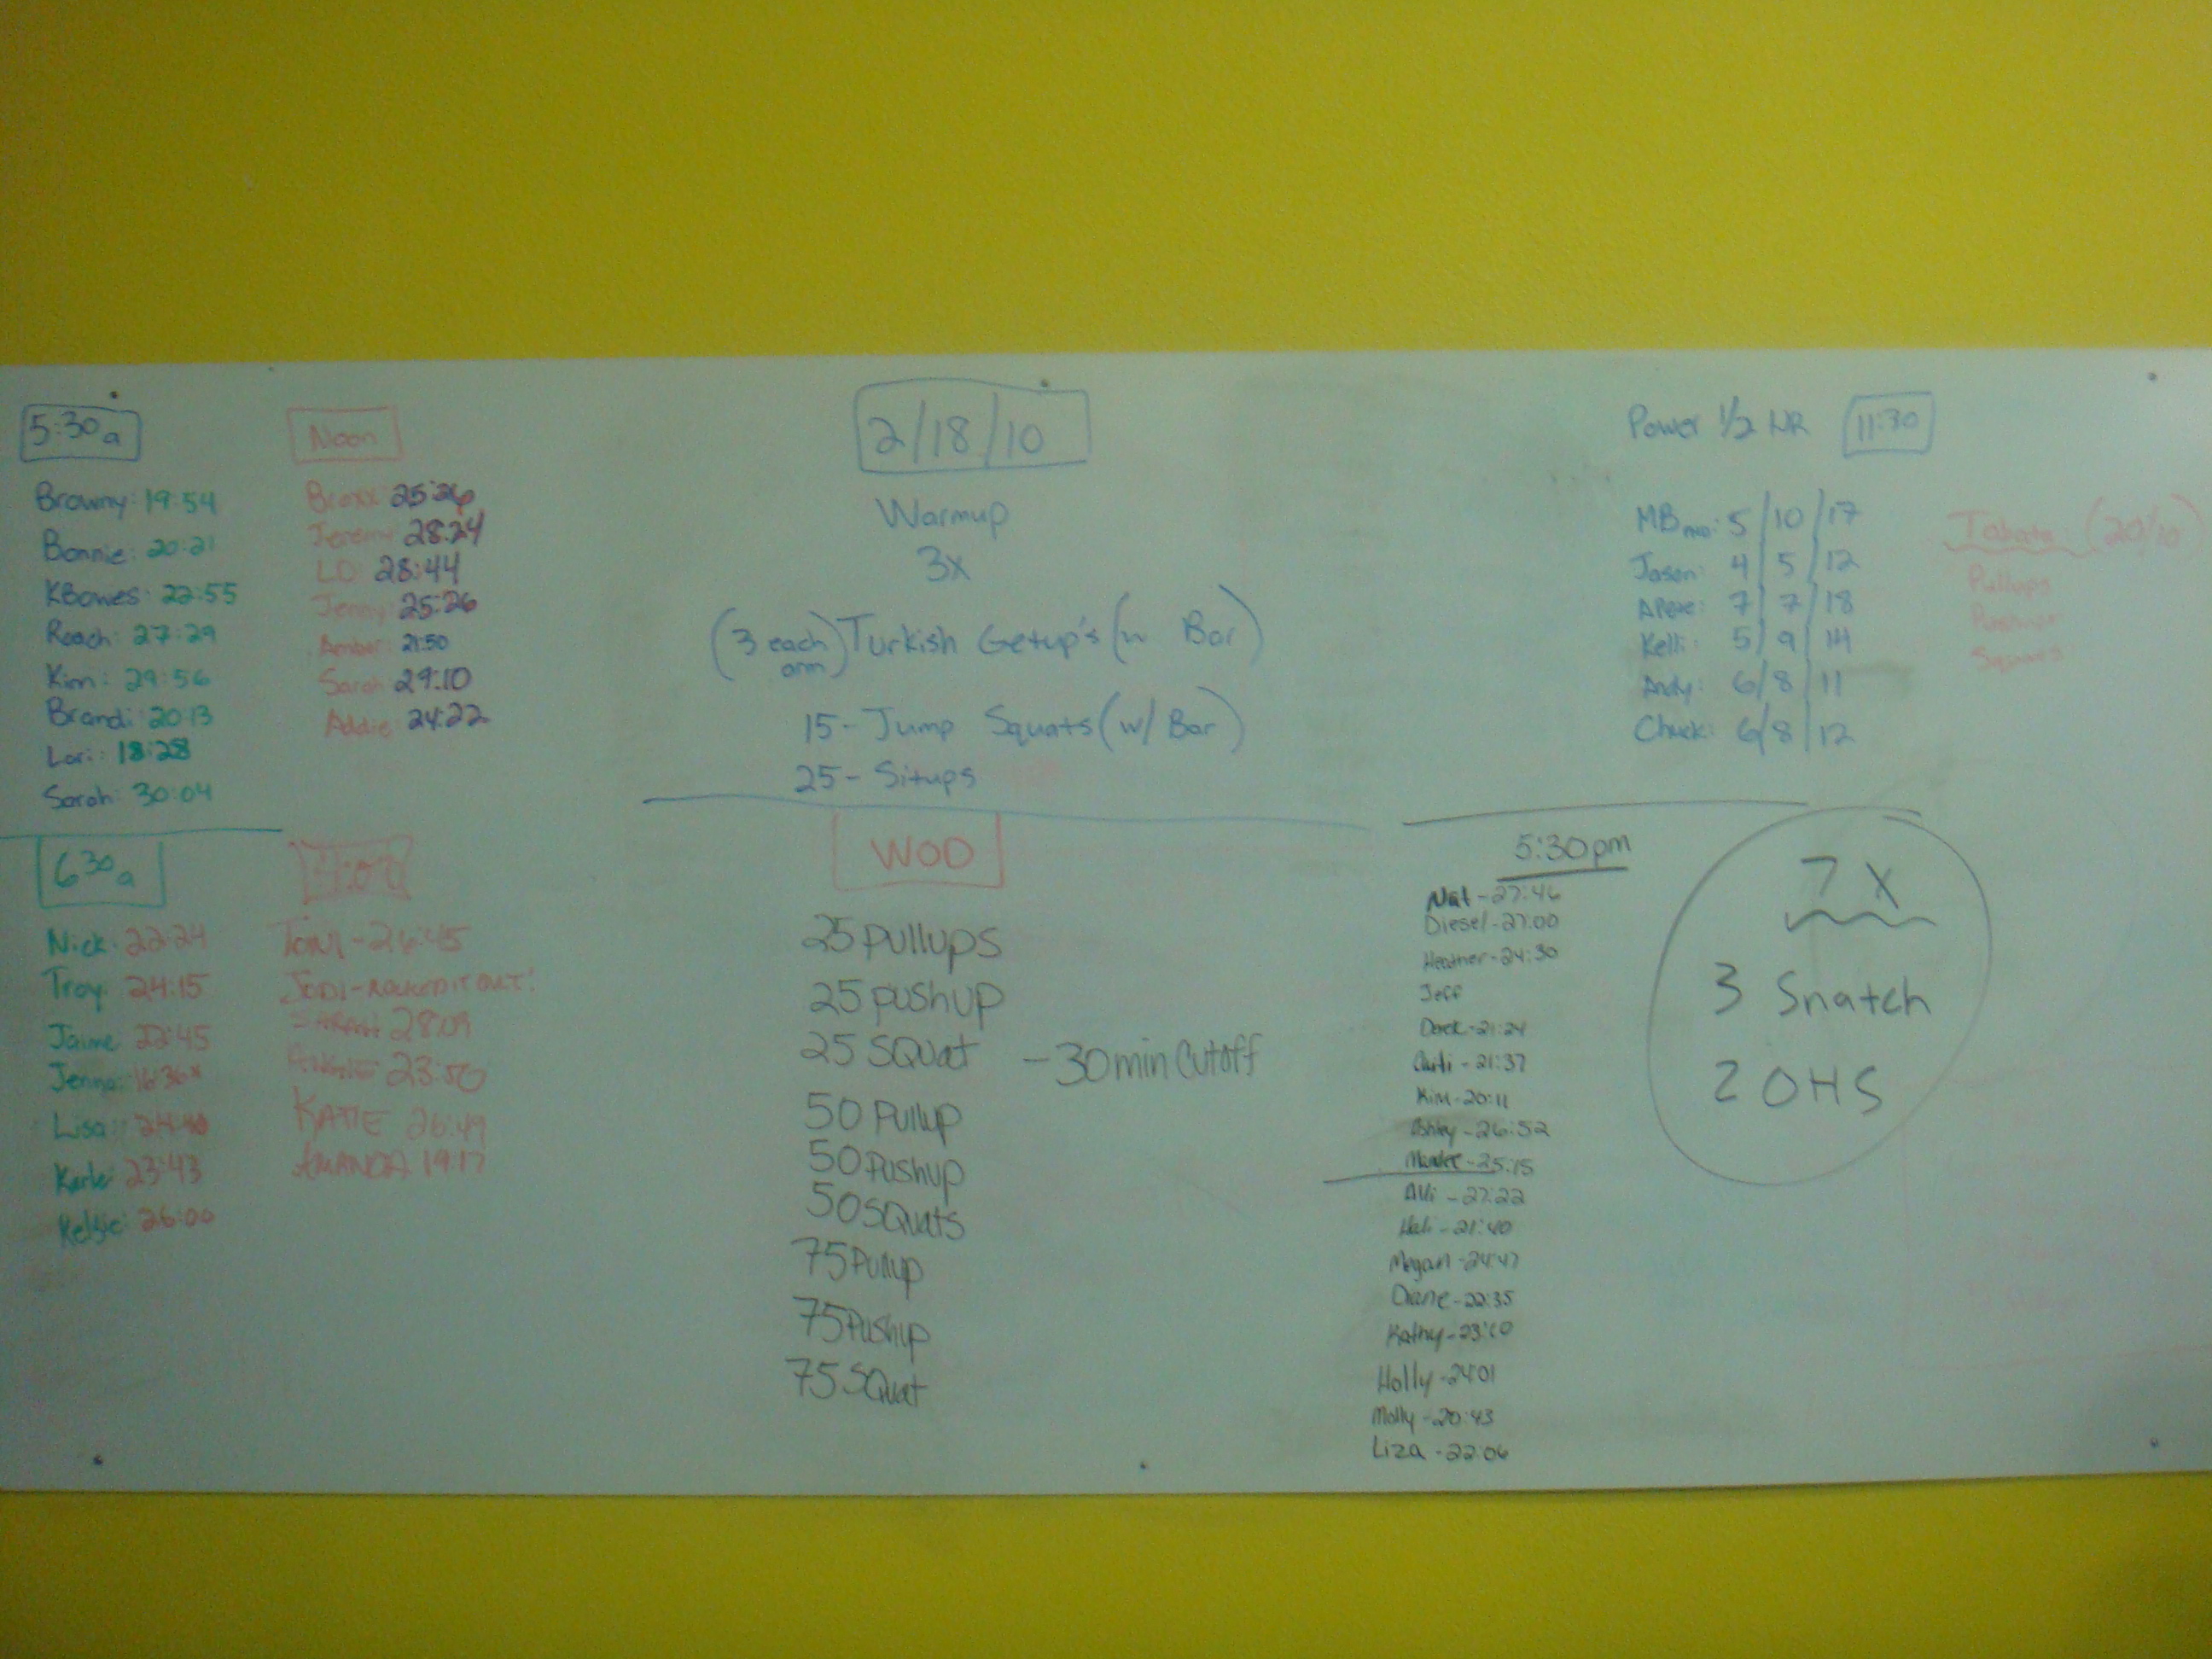 5:30a
Browny: 19:54
Bonnie: 20:21
KBowes: 22:55
Roach: 27:29
Kim: 29:56
Brandi: 20:13
Lori: 18:28
Sarah: 30:04
Noon
Broxx: 25:26
Jeremy: 28:24
LD: 28:44
Jenny: 25:26
Amber: 21:50
Sarah 29:10
Addie: 24:22
2/18/10
Warmup
3x
(3 each arm) Turkish Getup's (w Bar)
15- Jump Squats (w/ Bar)
25- Situps
Power 1/2 HR 11:30
5/10/17
Jason: 4/5/12
7/7/18
Kelli: 5/9/14
Andy: 6/8/11
Chuck: 6/8/12
Tabata: (20/10)
Pullups
Pushups
Squats
630a
Nick: 22:24
Troy: 24:15
Jaime: 22:45
Jenna: 16:36*
Lisa:
23:43
Kelsie: 26:00
4:00
TONI - 26:45
JODI - ROCKED IT OUT!
SARAH 28:09
23:50
KATIE 26:49
AMANDA 19:17
WOD
25 Pullups
25 pushup
25 SQuat - 30min Cutoff
50 Pullup
50 Pushup
50 SQuats
75 Pullup
75 Pushup
75 SQuat
5:30pm
Nat - 27:46
Diesel - 27:00
Heather - 24:30
Jeff
Derek - 21:24
21:37
Kim - 20:11
Ashley - 26:52
25:15
Alli - 27:22
21:40
Megan - 24:47
Diane - 22:35
Kathy - 23:10
Holly - 24:01
Molly - 20:43
Liza - 22:06
7x
3 Snatch
2 OHS